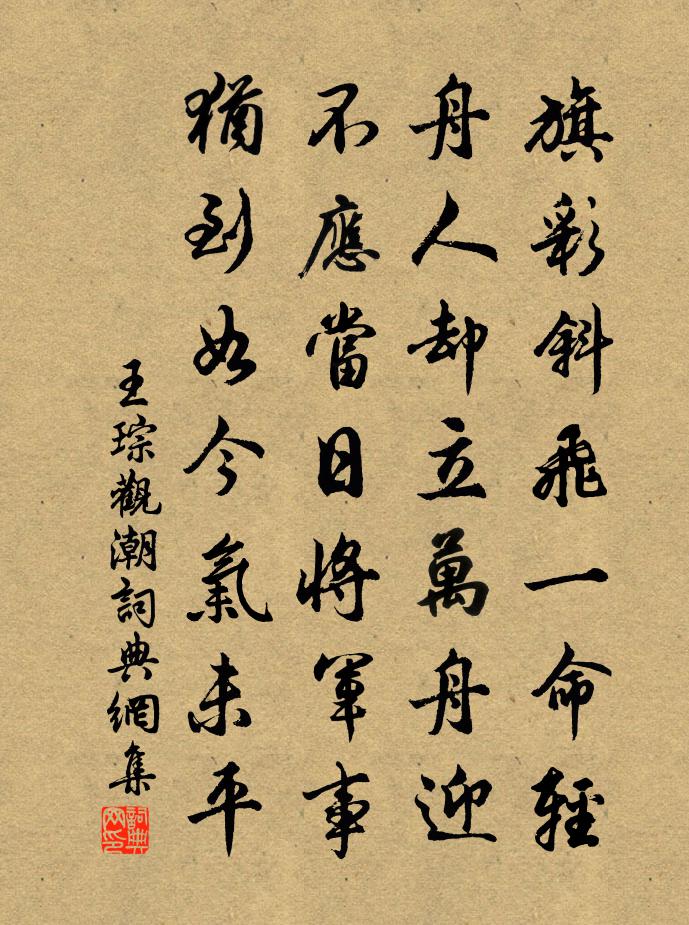 旗彩斜飛一命輕
舟人却立萬舟迎
不應當日將軍事
猶到如今氣未平
王琮觀潮詞典網集
詞典网印